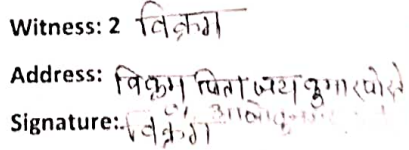 Witness: 2 विक्रम
Address: विक्रम पिता जय कुमार
Signature:. विक्रम